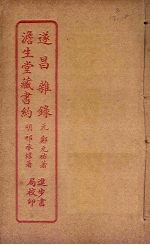 遂昌雜錄
元 鄭元祐著
澹生堂藏書約
明 祁承㸁著
進步書
局校印